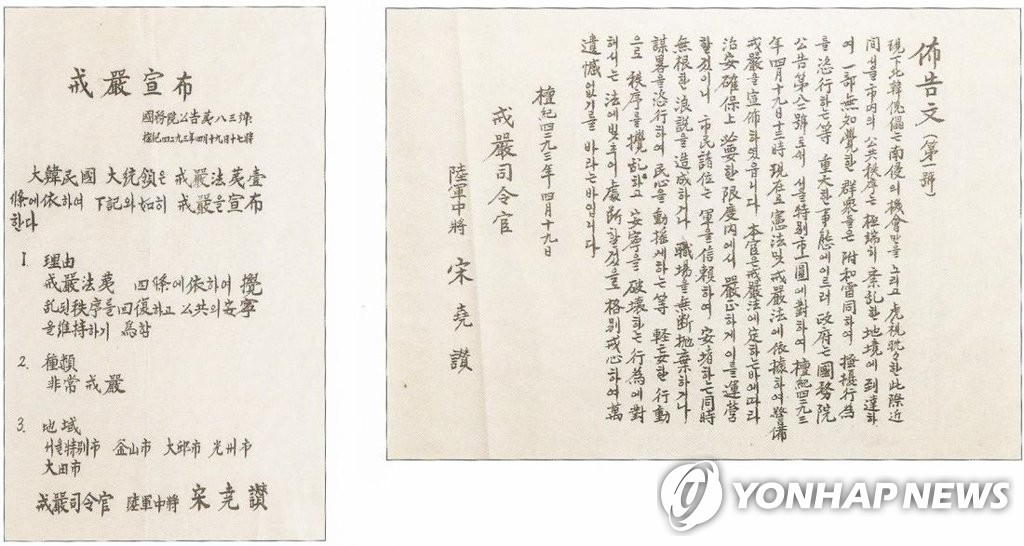 戒嚴宣布
國務院公告第八三號
檀紀四二九三年四月十九日十七時
大韓民國 大統領은 戒嚴法第壹
條에依하여 下記와如히 戒嚴을宣布
한다
1. 理由
戒嚴法第 四條에依하여 攪
乱된秩序를回復하고 公共의安寧
을維持하기 爲함
2. 種類
非常戒嚴
3. 地域
서울特別市 釜山市 大邱市 光州市
大田市
戒嚴司令官 陸軍中將 宋堯讚
佈告文(第一號)
現下北韓傀儡는南侵의機會만을노리고虎視眈々한此際近
間서울市内의公共秩序는極端히紊乱한地境에到達하
여 一部無知覺한群衆들은附和雷同하여 騷擾行為
를恣行하는等 重大한事態에이르러政府는國務院
公告第八二號로서 서울特別市一圓에對하여 檀紀四二九三
年四月十九日十三時現在로憲法및戒嚴法에依據하여警備
戒嚴을宣佈하였읍니다 本官은戒嚴法에定하는바에따라
治安確保上必要한限度内에서嚴正하게이를運營
할것이니市民諸位는 軍을信賴하여 安堵하는同時
無根한浪說을造成하거나 職場을無断抛棄하거나
謀畧을恣行하여民心을動搖케하는等 軽妄한行動
으로秩序를攪乱하고安寧을破壞하는行為에對
해서는法에빛추어處断할것을格別戒心하여萬
遺憾없기를 바라는바입니다
檀紀四二九三年四月十九日
戒嚴司令官
陸軍中將 宋堯讚
YONHAP NEWS